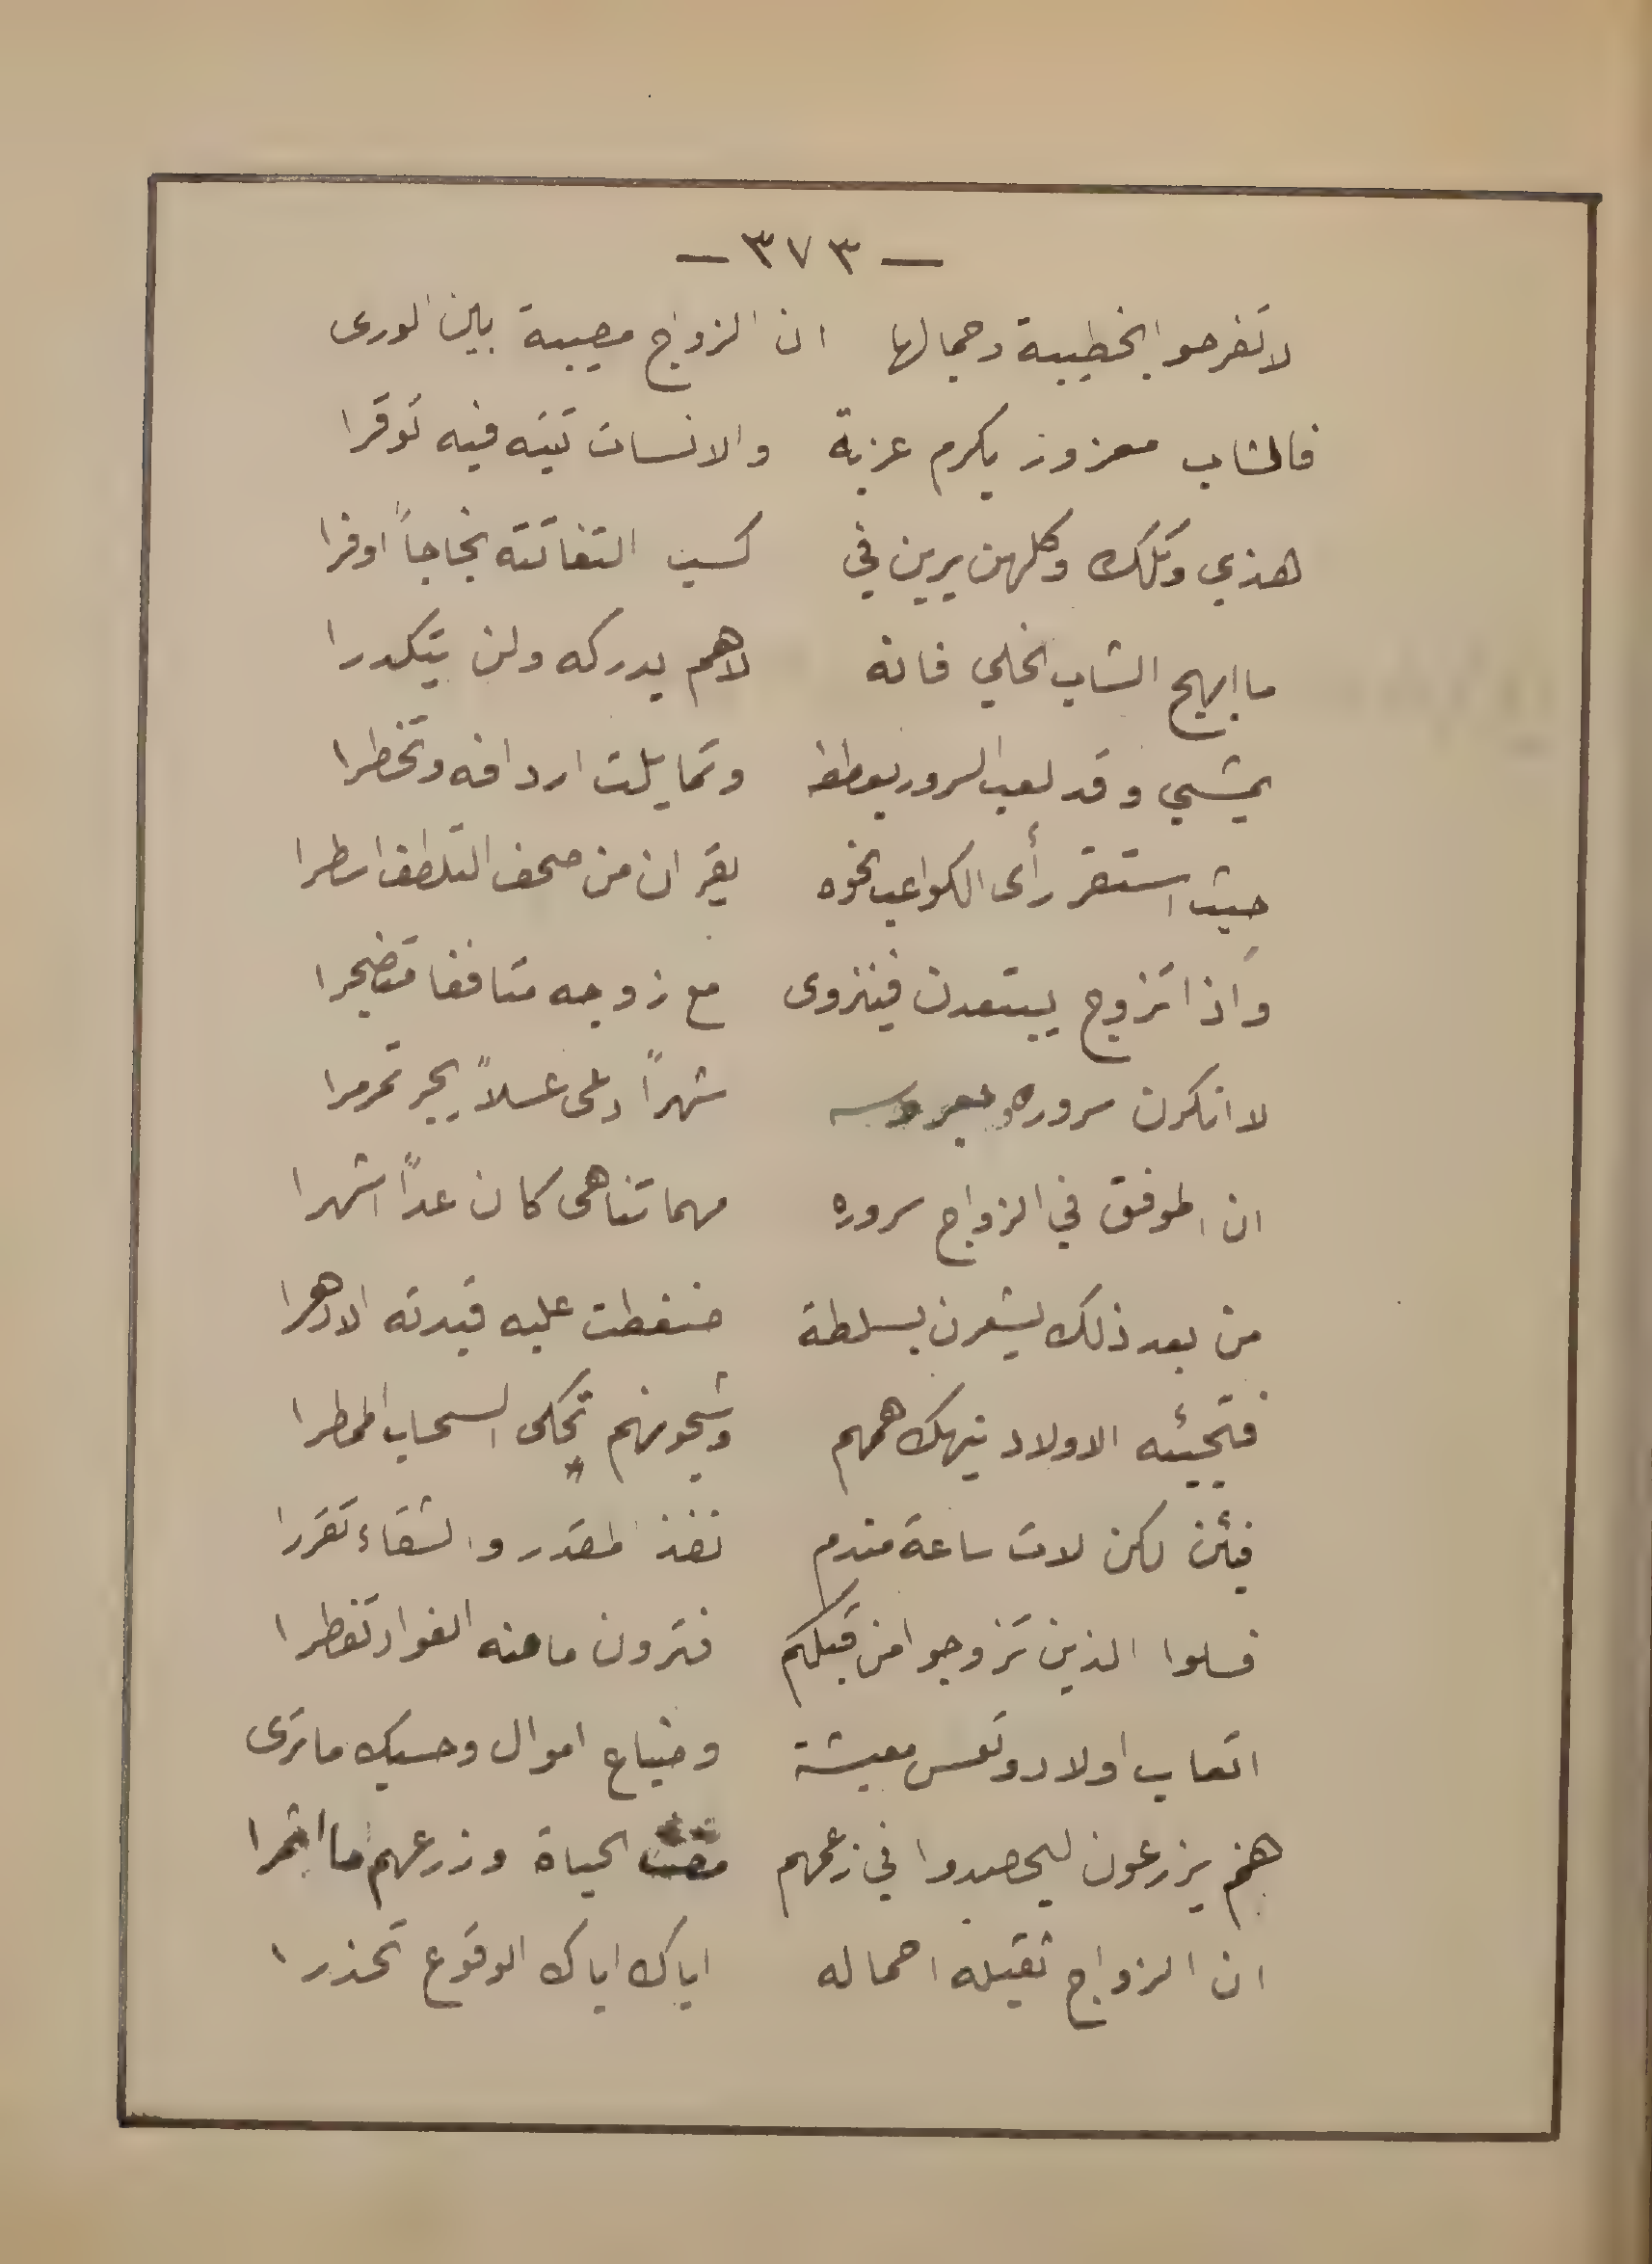 — ٣٧٣ —
لا تفرحوا بخطيبة وجمالها ان الزواج مصيبة بين الورى
فالشاب معزوز يكرم عزبة والانسات تيته فيه توقرا
هذي وتلك وكلهن يرين في كسب التفاتته نجاحاً اوفرا
ما ابهج الشاب الخلي فانه لا هم يدركه ولن يتكدرا
يمشي وقد لعب السرور بعطفه وتمايلت اردافه وتخطرا
حيث استقر رأى الكواعب نحوه يقرأن من صحف التلطف اسطرا
واذا تزوج يبتعدن فينزوى مع زوجه متاففا متضجرا
لا انكرن سروره وبعروسه شهراً دعى عسلاً يجر تمرمرا
ان الموفق في الزواج سروره مهما تناهى كان عداً اشهرا
من بعد ذلك يشعرن بسلطة ضغطت عليه قيدته الادهرا
فتجيئه الاولاد ينهك همهم وشجونهم تحكى السحاب الممطرا
فيئن لكن لات ساعة مندم نفذ المقدر والشقاء تقررا
فسلوا الذين تزوجوا من قبلكم فترون ما منه الفواد تفطرا
اتعاب اولاد وتعس معيشة وضياع اموال وحسبك ما ترى
هم يزرعون ليحصدوا في زعمهم الحياة وزرعهم ما اثمرا
ان الزواج ثقيله احماله اياك اياك الوقوع تحذرا